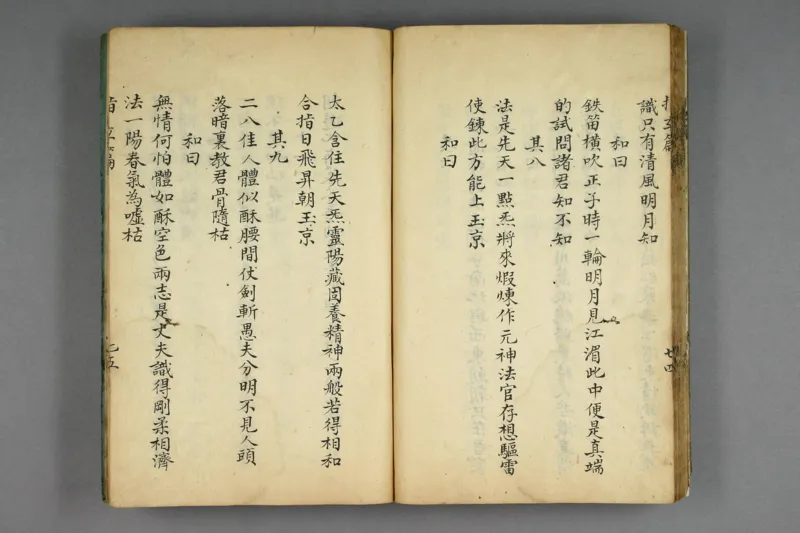 指玄篇
廿四
識只有清風明月知
和曰
鉄笛橫吹正子時一輪明月見江湄此中便是真端
的試問諸君知不知
其八
法是先天一點炁將來煆煉作元神法官存想驅雷
使鍊此方能上玉京
和曰
太乙含住先天炁靈陽藏固養精神兩般若得相和
合指日飛昇朝玉京
其九
二八佳人體似酥腰間仗劍斬愚夫分明不見人頭
落暗裏教君骨隨枯
和曰
無情何怕體如酥空色兩志是丈夫識得剛柔相濟
法一陽春氣為噓枯
指玄篇
二五